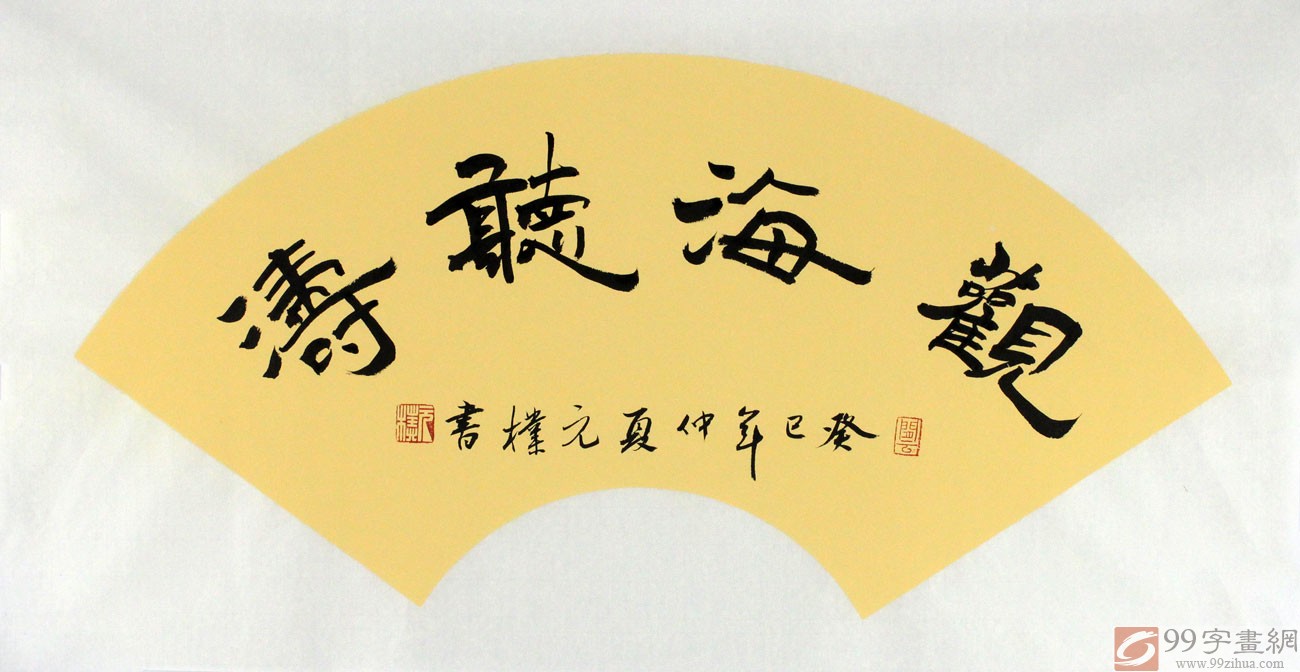 觀海聽濤
癸巳年仲夏元樸書
元樸
99字畫網
www.99zihua.com